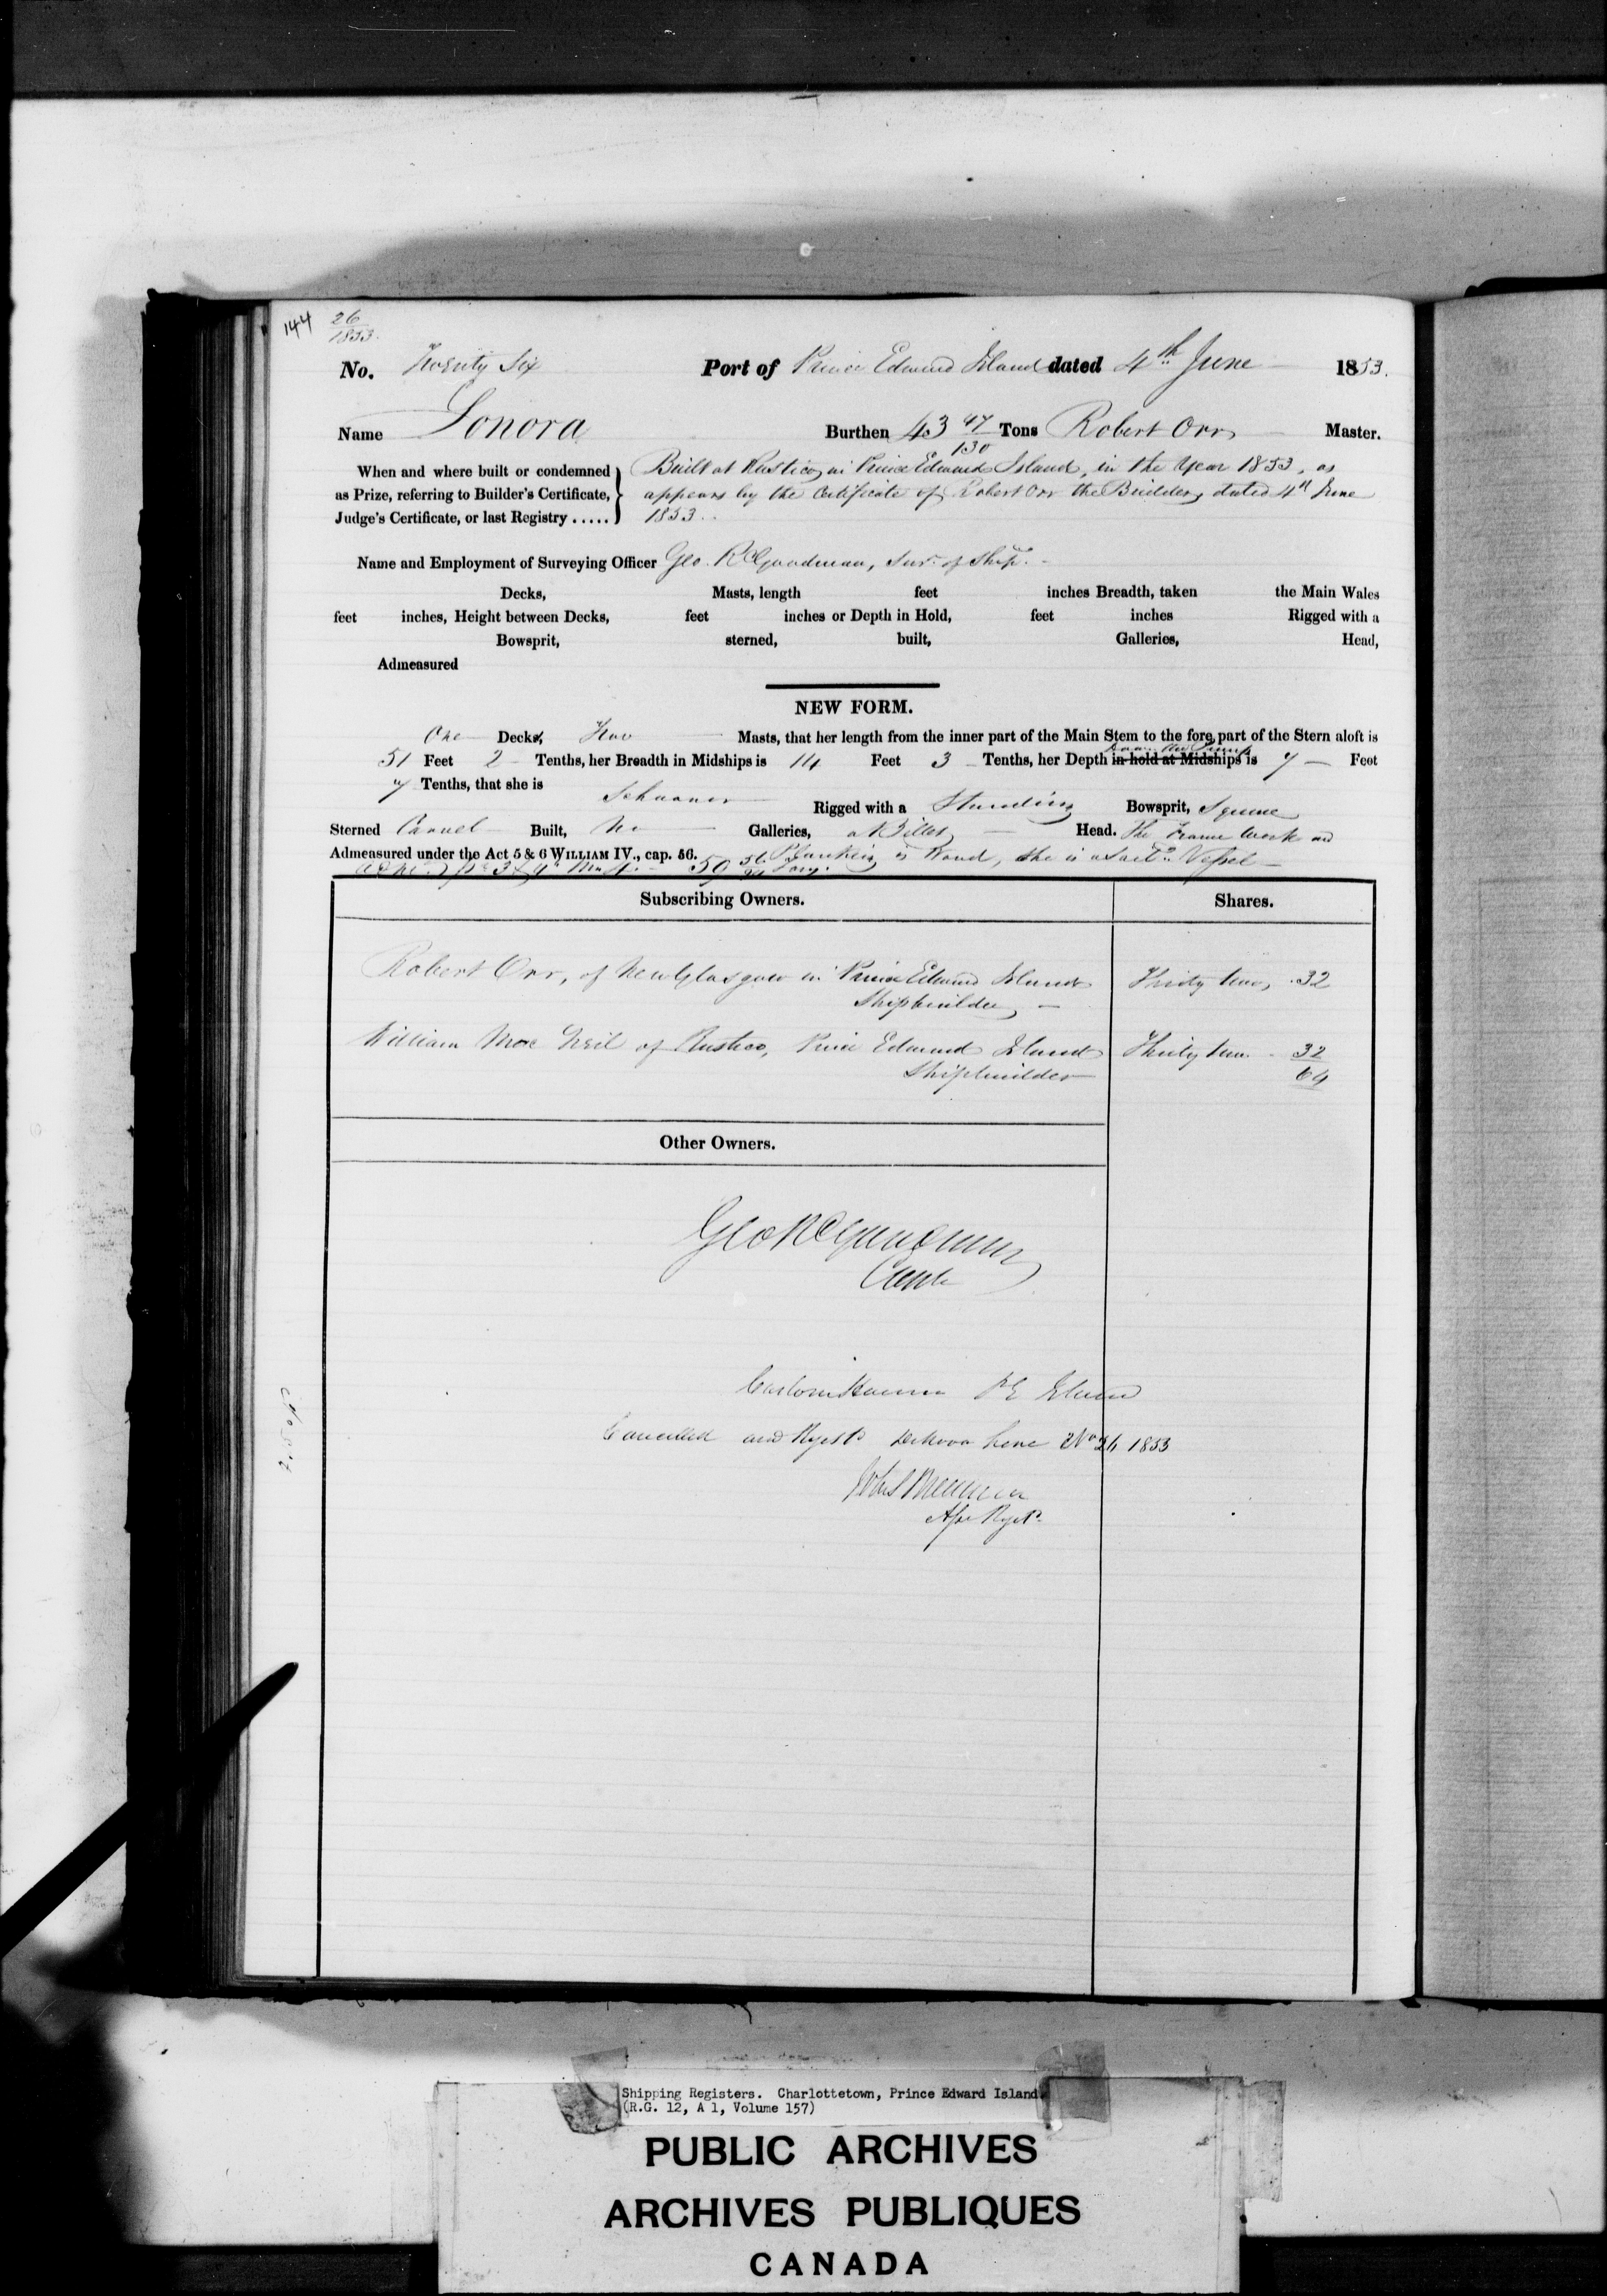 144 26
1853.
No. Twenty Six Port of Prince Edward Island dated 4th June 1853.
Name Sonora Burthen 43 47/130 Tons Robert Orr Master.
When and where built or condemned as Prize, referring to Builder's Certificate, Judge's Certificate, or last Registry .....
Built at Rustico, in Prince Edward Island, in the Year 1853, as
appears by the Certificate of Robert Orr the Builder, dated 4th June
1853.
Name and Employment of Surveying Officer Geo. R Goodman, Surr. of Ship.
Decks, Masts, length feet inches Breadth, taken the Main Wales
feet inches, Height between Decks, feet inches or Depth in Hold, feet inches Rigged with a
Bowsprit, sterned, built, Galleries, Head,
Admeasured
NEW FORM.
One Decks, Two Masts, that her length from the inner part of the Main Stem to the fore part of the Stern aloft is
51 Feet 2 Tenths, her Breadth in Midships is 14 Feet 3 Tenths, her Depth in hold at Midships is 7 Feet
7 Tenths, that she is Schooner Rigged with a Standing Bowsprit, Square
Sterned Carvel Built, No Galleries, a Billet Head. The Frame Work and
Admeasured under the Act 5 & 6 WILLIAM IV., cap. 56. Planking is Wood, she is a Sail'g Vessel
59
Subscribing Owners. Shares.
Robert Orr, of New Glasgow in Prince Edward Island Thirty two, 32
Shipbuilder,
William Mac Neil of Rustico, Prince Edward Island Thirty two 32
Shipbuilder 64
Other Owners.
Geo R Goodman
Custom House P E Island
Cancelled and Regist'd De Novo here No 26 1853
PUBLIC ARCHIVES
Shipping Registers. Charlottetown, Prince Edward Island
(R.G. 12, A 1, Volume 157)
ARCHIVES PUBLIQUES
CANADA